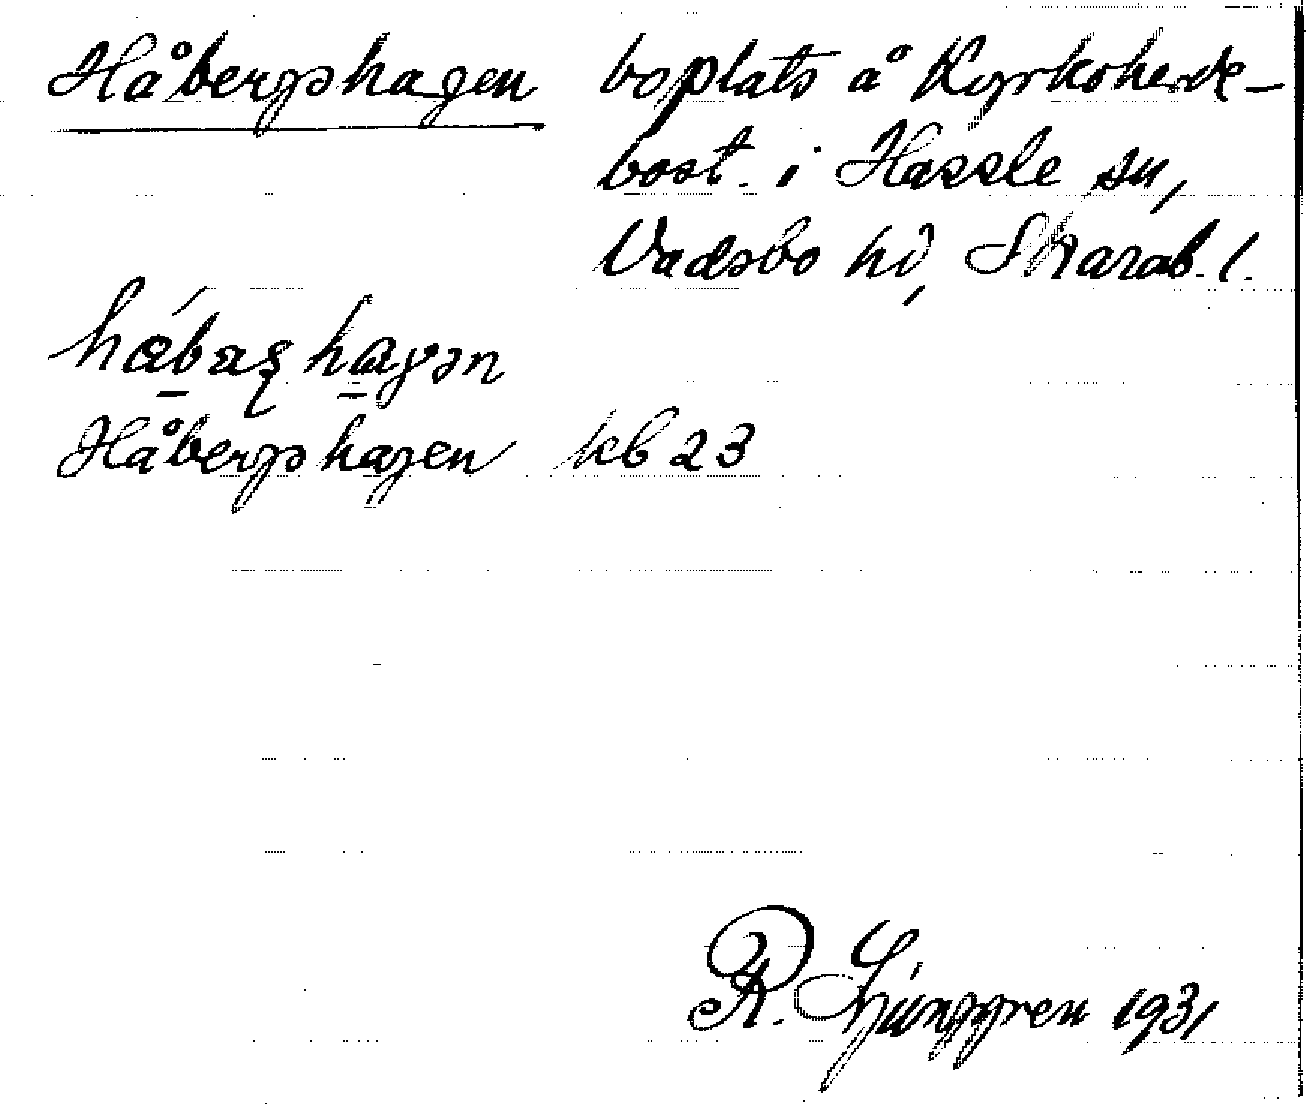 Håbergshagen boplats å Kyrkoherde-
bost. i Hassle sn,
Vadsbo hd, Skarab. l.
Håbergshagen kb 23
R. Ljunggren 1931